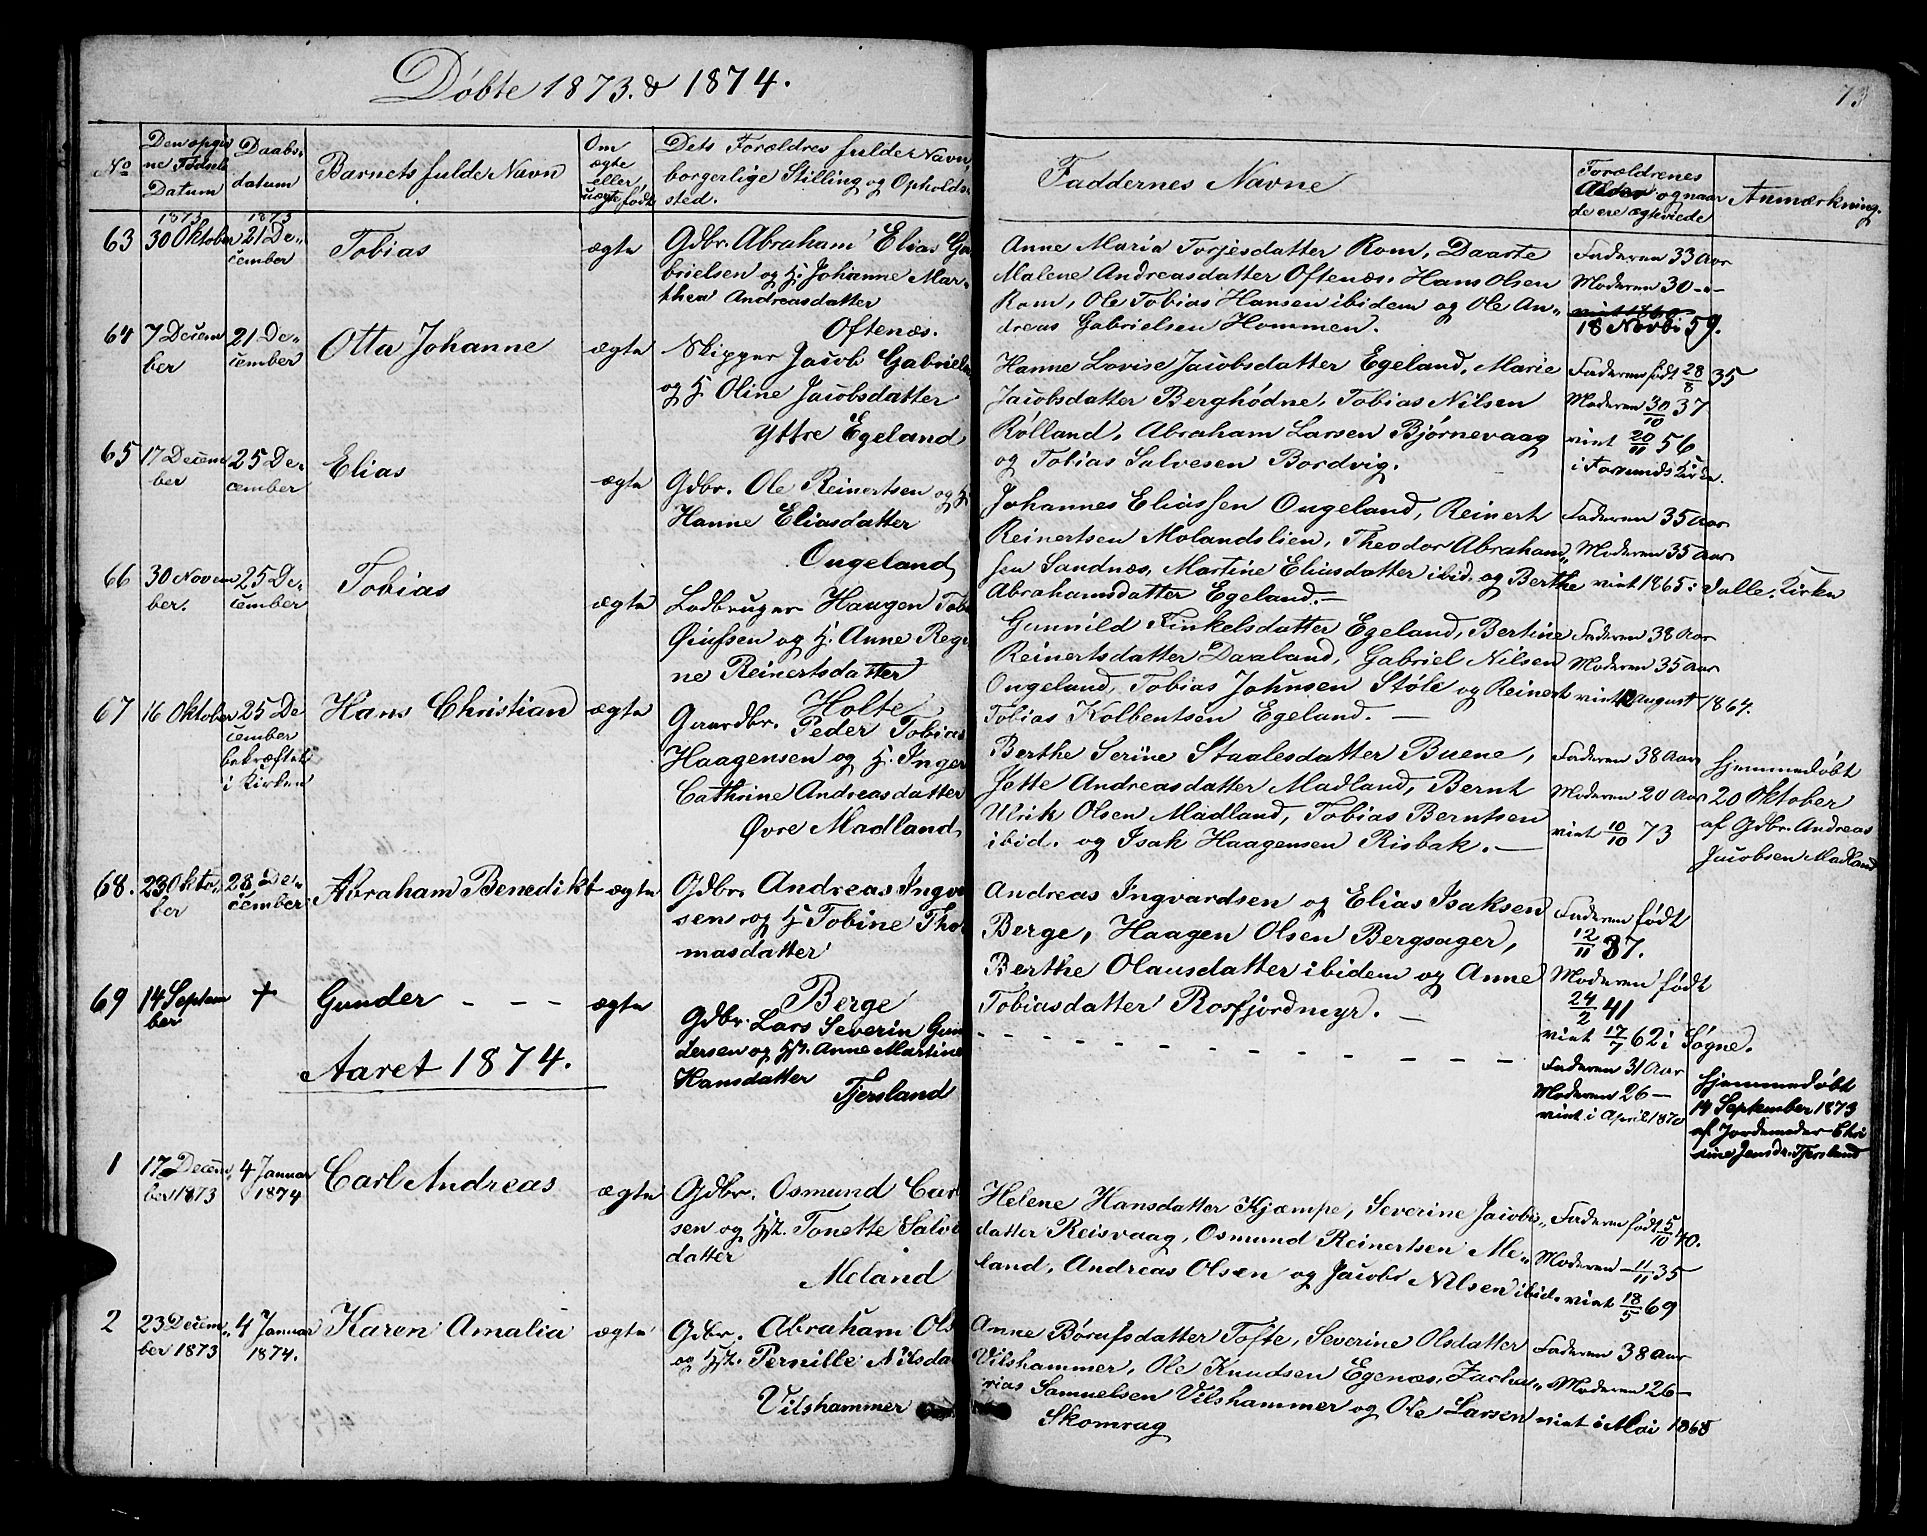 Døbte 1873. & 1874.
73
No
Den opgiv
ne Fødsels
Datum
Daabs-
datum
Barnets fulde Navn
Om
ægte
eller
uægte født
Dets Forældres fulde Navn,
borgerlige Stilling og Opholds-
sted.
Faddernes Navne
Forældrenes
Alder og naar
de ere ægteviede
Anmærkning.
63
1873
30 Oktober
1873
21 De-
cember
Tobias
ægte
Gdbr. Abraham Elias Ga
brielsen og H. Johanne Mar-
thea Andreasdatter
Oftenæs.
Anne Maria Torjesdatter Rom, Daarte
Malene Andreasdatter Oftenæs, Hans Olsen
Rom, Ole Tobias Hansen ibidem og Ole An-
dreas Gabrielsen Hommen.
Faderen 33 Aar
Moderen 30 -"-
viet 1860
18 Novbr 59.
64
7 Decem
ber
21 De-
cember
Otta Johanne
ægte
Skipper Jacob Gabriels
og H. Oline Jacobsdatter
Yttre Egeland
Hanne Lovise Jacobsdatter Egeland, Marie
Jacobsdatter Berghødne, Tobias Nilsen
Rølland, Abraham Larsen Bjørnevaag
og Tobias Salvesen Bordvig.
Faderen født 28/8 35
Moderen 30/10 37
viet 20/11 56
i Farsunds Kirke.
65
17 Decem
ber
25 De-
cember
Elias
ægte
Gdbr. Ole Reinertsen og H
Hanne Eliasdatter
Ongeland
Johannes Eliassen Ongeland, Reinert
Reinertsen Molandslien, Theodor Abraham
sen Sandnæs, Martine Eliasdatter ibid. og Berthe
Abrahamsdatter Egeland.
Faderen 35 Aar
Moderen 35 Aar
viet 1865 i Valle Kirke
66
30 Novem
ber.
25 De-
cember
Tobias
ægte
Lodbruger Haagen Tob
Øiufsen og H. Anne Regi
ne Reinertsdatter
Holte
Gunnild Finkelsdatter Egeland, Bertine
Reinertsdatter Daaland, Gabriel Nilsen
Ongeland, Tobias Johnsen Støle og Reinert
Tobias Kolbentsen Egeland.
Faderen 38 Aar
Moderen 35 Aar
viet August 1864.
67
16 Oktober
25 De
cember
bekræftet
i Kirken
Hans Christian
ægte
Gaardbr. Peder Tobias
Haagensen og H. Inger
Cathrine Andreasdatter
Øvre Madland
Berthe Serine Staalesdatter Buene,
Jette Andreasdatter Madland, Bernt
Ulrik Olsen Madland, Tobias Berntsen
ibid. og Isak Haagensen Risbak.
Faderen 38 Aar
Moderen 20 Aar
viet 10/10 73
Hjemmedøbt
20 Oktober
af Gdbr. Andreas
Jacobsen Madland
68.
23 Okto-
ber
28 De-
cember
Abraham Benedikt
ægte
Gdbr. Andreas Ingva
sen og H Tobine Tho
masdatter
Berge
Andreas Ingvardsen og Elias Isaksen
Berge, Haagen Olsen Bergsager,
Berthe Olausdatter ibidem og Anne
Tobiasdatter Rosfjordmyr.
Faderen født
12/11 37.
Moderen født
24/2 41
viet 17/7 62 i Søgne.
69
14 Septem
ber
+
Gunder - - -
ægte
Gdbr. Lars Severin Gun
dersen og H. Anne Martine
Hansdatter
Tjersland
Faderen 31 Aar
Moderen 26 -
viet i April 1870
Hjemmedøbt
14 September 1873
af Jordemoder Chri
stine Jensdr. Tjersland
Aaret 1874.
1
17 Decem
ber 1873
4 Januar
1874
Carl Andreas
ægte
Gdbr. Osmund Carl
sen og H. Tonette Salve
datter
Meland
Helene Hansdatter Kjæmpe, Severine Jacobs
datter Reisvaag, Osmund Reinertsen Me-
land, Andreas Olsen og Jacob Nilsen ibid.
Faderen født 5/10 40.
Moderen 11/11 35
viet 18/5 69
2
23 Decem
ber 1873
4 Januar
1874.
Karen Amalia
ægte
Gdbr. Abraham Ols
og H. Pernille Nilsda
Vilshammer
Anne Børufsdatter Tofte, Severine Olsdatter
Vilshammer, Ole Knudsen Egenæs, Zacha
rias Samuelsen Vilshammer og Ole Larsen
Skomrag
Faderen 38 Aar
Moderen 26 -
viet i Mai 1868